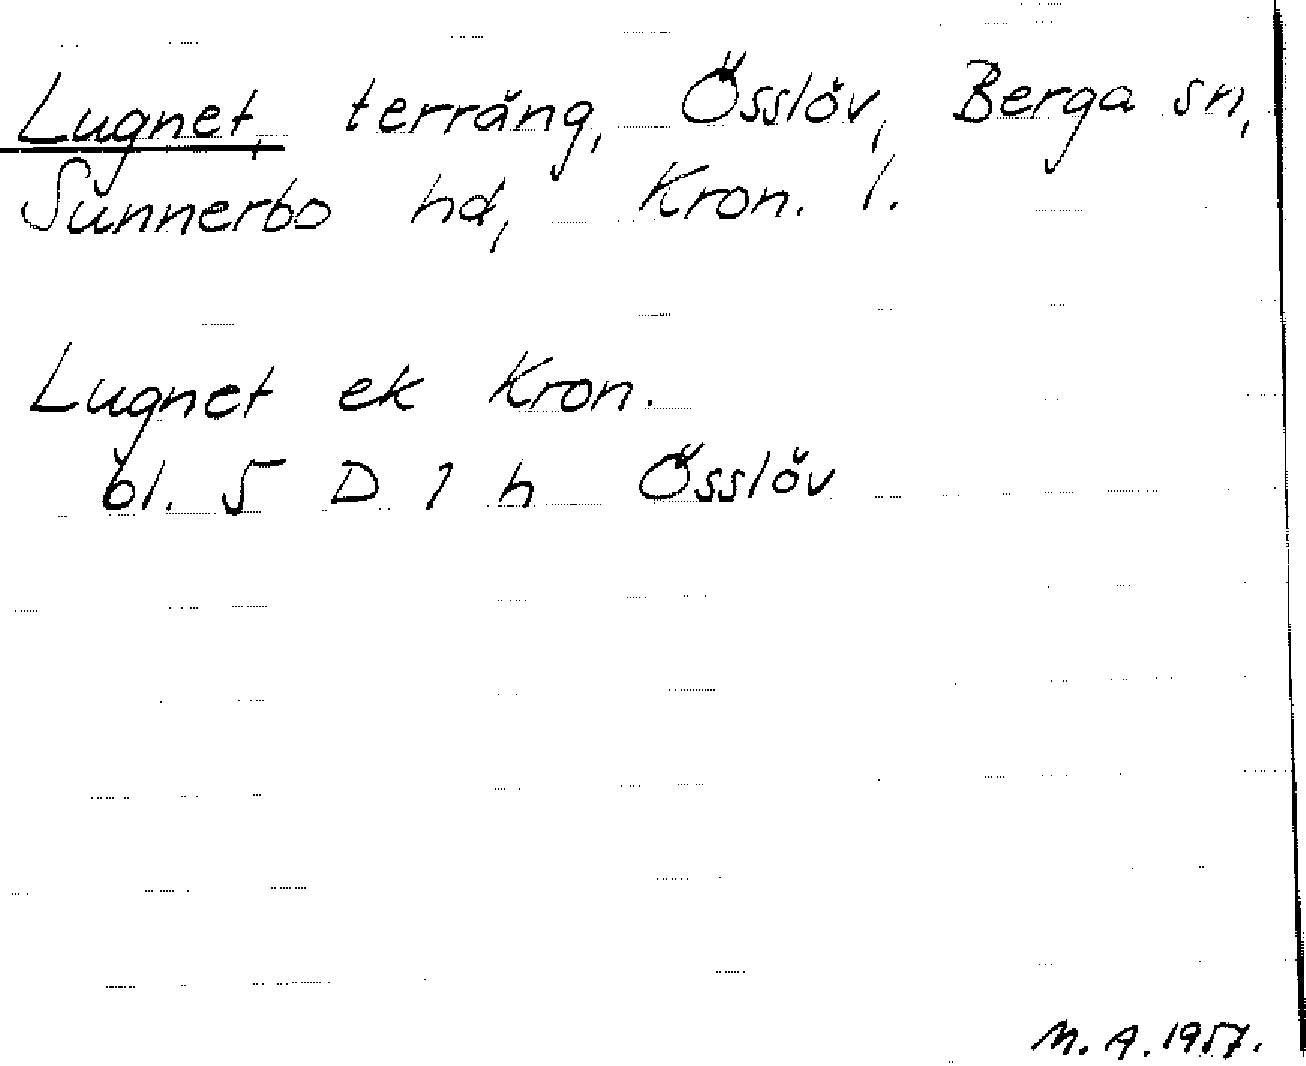 Lugnet, terräng, Össlöv, Berga sn,
Sunnerbo hd, Kron. l.
Lugnet ek Kron.
bl. 5 D 1 h Össlöv
M. A. 1957.